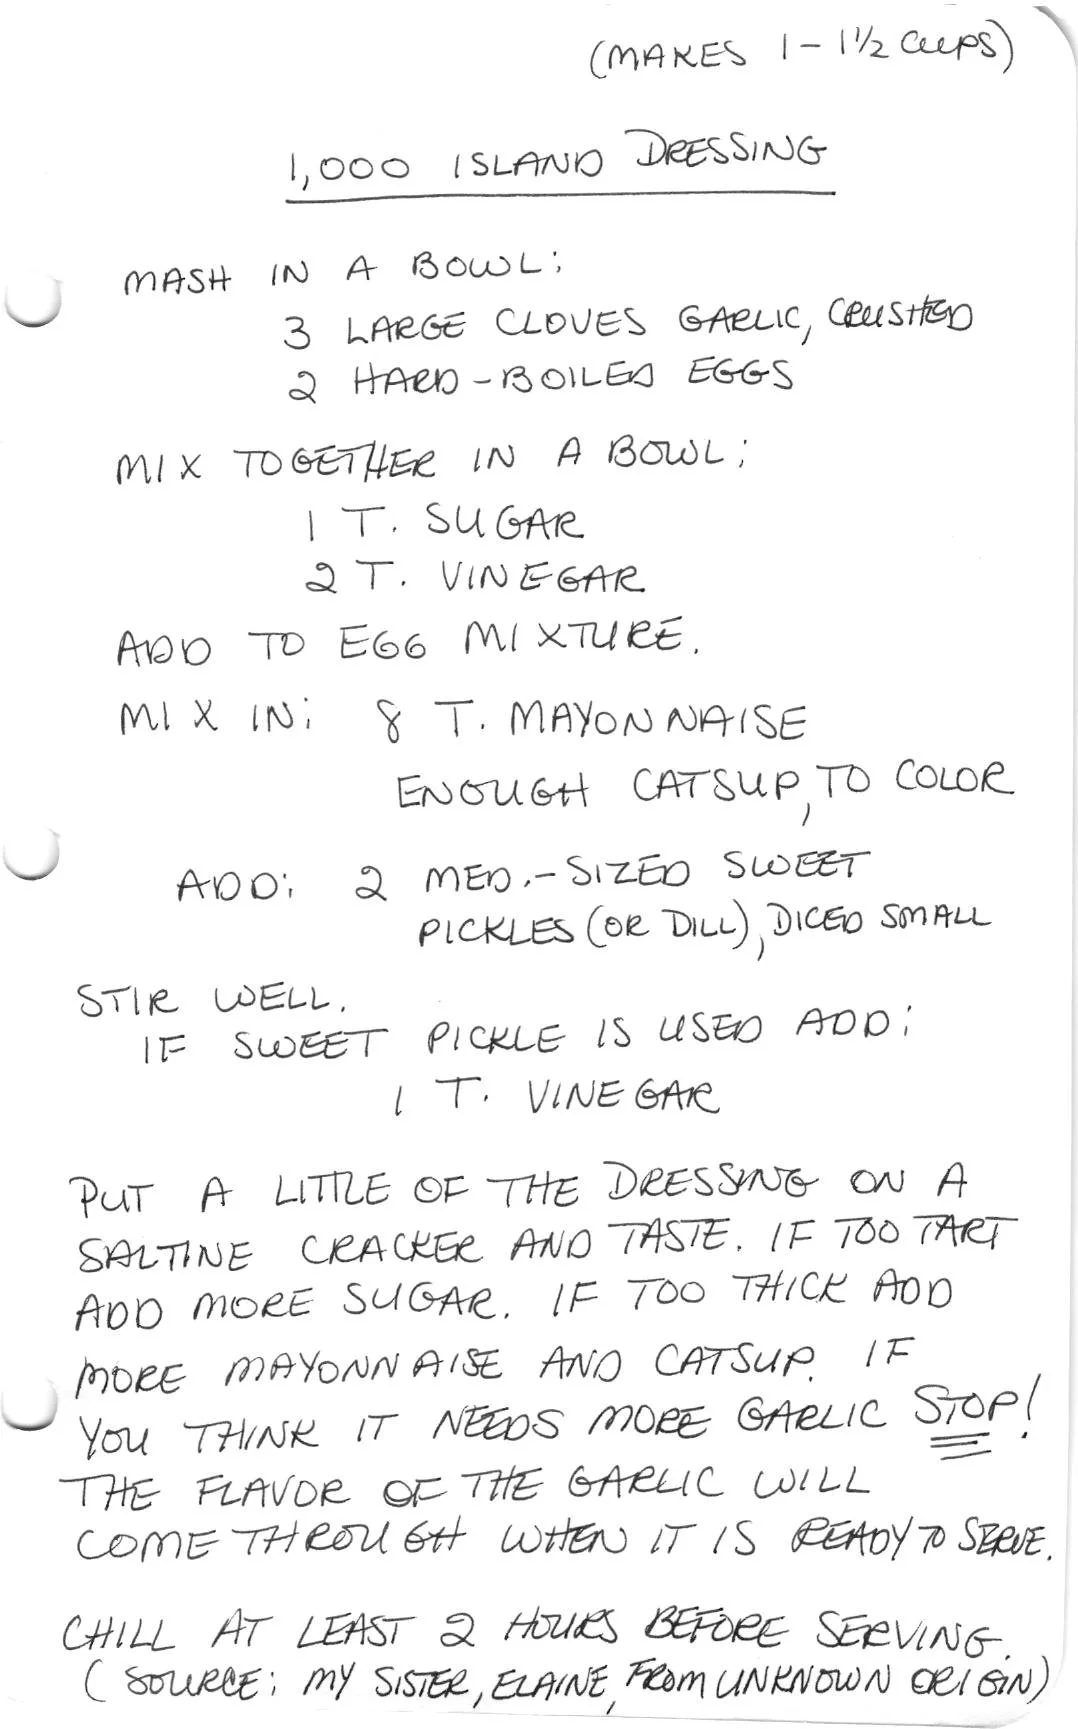 (MAKES 1 - 1 1/2 CUPS)
1,000 ISLAND DRESSING
MASH IN A BOWL:
3 LARGE CLOVES GARLIC, CRUSHED
2 HARD-BOILED EGGS
MIX TOGETHER IN A BOWL:
1 T. SUGAR
2 T. VINEGAR
ADD TO EGG MIXTURE.
MIX IN: 8 T. MAYONNAISE
ENOUGH CATSUP, TO COLOR
ADD: 2 MED.-SIZED SWEET
PICKLES (OR DILL), DICED SMALL
STIR WELL.
IF SWEET PICKLE IS USED ADD:
1 T. VINEGAR
PUT A LITTLE OF THE DRESSING ON A
SALTINE CRACKER AND TASTE. IF TOO TART
ADD MORE SUGAR. IF TOO THICK ADD
MORE MAYONNAISE AND CATSUP. IF
YOU THINK IT NEEDS MORE GARLIC STOP!
THE FLAVOR OF THE GARLIC WILL
COME THROUGH WHEN IT IS READY TO SERVE.
CHILL AT LEAST 2 HOURS BEFORE SERVING.
(SOURCE: MY SISTER, ELAINE, FROM UNKNOWN ORIGIN)